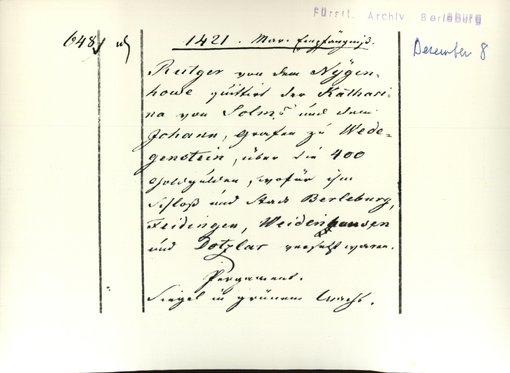 Fürstl. Archiv Berleburg
648
1421. Mar. Empfängniß.
December 8
Rutger von dem Nygen-
howe quittirt der Kathari-
na von Solms und dem
Johann, Grafen zu Wede-
genstein, über die 400
Goldgulden, wofür ihm
Schloß und Stadt Berleburg,
Feidingen, Weidenhausen
und Dotzlar versetzt waren.
Pergament.
Siegel in grünem Wachs.